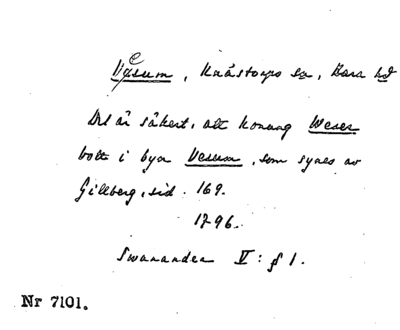 Vesum, Knästorps sn, Bara hd
Det är säkert, att konung Weser
bott i byn Vesum, som synes av
Gillberg, sid. 169.
1796.
Swanander V: § 1.
Nr 7101.